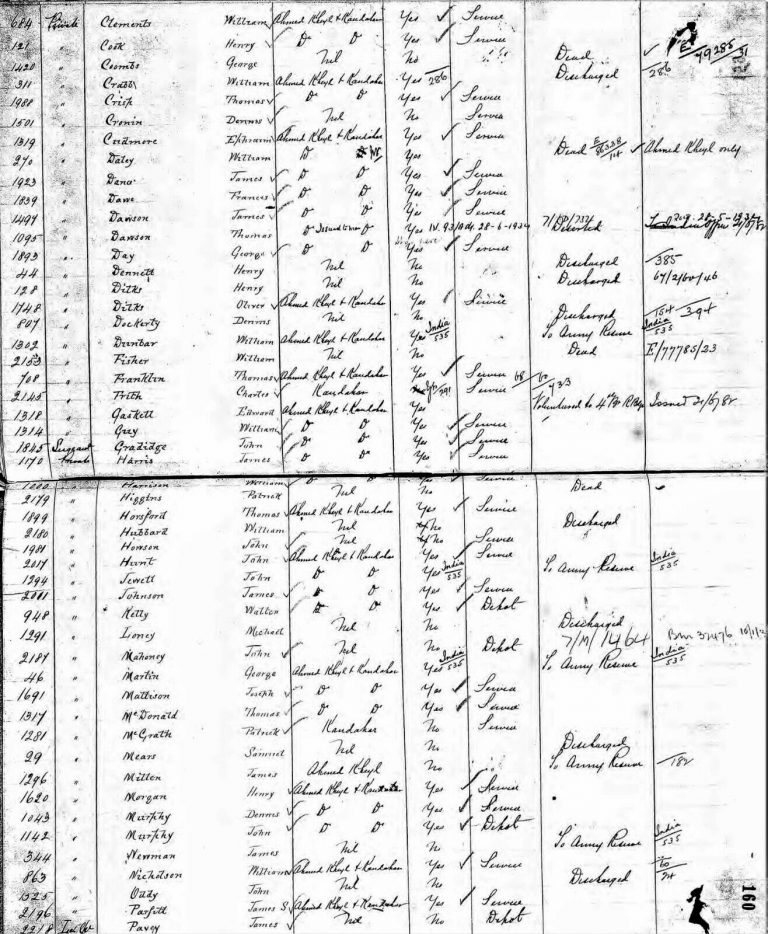 684 Private Clements William Ahmed Kheyl & Kandahar Yes Service
121 " Cook Henry D D Yes Service
1420 " Coombs George Nil No Dead E/79285/31
311 " Crabb William Ahmed Kheyl & Kandahar Yes 286 Discharged 286
1988 " Crisp Thomas D D Yes Service
1501 " Cronin Dennis Nil No Service
1319 " Cudmore Ephraim Ahmed Kheyl & Kandahar Yes Service
270 " Daley William D Yes Dead Ahmed Kheyl only
1923 " Dana James D D Yes Service
1839 " Dawe Francis D D Yes Service
1497 " Dawson James D D Yes Service
1095 " Dawson Thomas D Issued to D Yes 28-6-1934 Deserted
1893 " Day George D D Yes Service
44 " Dennett Henry Nil No Discharged 385
128 " Ditks Henry Nil No Discharged 67/2/60/46
1748 " Ditks Oliver Ahmed Kheyl & Kandahar Yes Service
807 " Dockerty Dennis Nil No Discharged 394
1302 " Dunbar William Ahmed Kheyl & Kandahar Yes India 535 To Army Reserve India 535
2153 " Fisher William Nil No Dead E/77785/23
708 " Franklin Thomas Ahmed Kheyl & Kandahar Yes Service
2145 " Frith Charles Kandahar Service
1318 " Gaskett Edward Ahmed Kheyl & Kandahar Yes Volunteered to 4th Bn R. Bde Issued 21/6/82
1314 " Gay William D D Yes Service
1845 Sergeant Gradidge John D D Yes Service
1170 Private Harris James D D Yes Service
" Harrison William D D Yes Service
2179 " Higgins Patrick Nil No Dead
1899 " Horsford Thomas Ahmed Kheyl & Kandahar Yes Service
2180 " Hubbard William Nil No Discharged
1981 " Howson John Nil No Service
2017 " Hunt John Ahmed Kheyl & Kandahar Yes Service
1294 " Jewett John D D Yes India 535 To Army Reserve India 535
2001 " Johnson James D D Yes Service
948 " Kelly Walter D D Yes Depot
1291 " Loney Michael Nil No Discharged 7/M/1464
2187 " Mahoney John Nil No Depot
46 " Martin George Ahmed Kheyl & Kandahar Yes India 535 To Army Reserve India 535
1691 " Mattison Joseph D D Yes Service
1317 " McDonald Thomas D D Yes Service
1281 " McGrath Patrick Kandahar No Service
29 " Mears Samuel Nil No Discharged
1296 " Mitten James Ahmed Kheyl No To Army Reserve 182
1620 " Morgan Henry Ahmed Kheyl & Kandahar Yes Service
1043 " Murphy Dennis D D Yes Service
1142 " Murphy John D D Yes Depot
344 " Newman James Nil No To Army Reserve India 535
863 " Nicholson William Ahmed Kheyl & Kandahar Yes Service
1525 " Oddy John Nil No Discharged
2196 " Parfitt James S. Ahmed Kheyl & Kandahar Yes Service
2218 Pavey James Nil No Depot
160